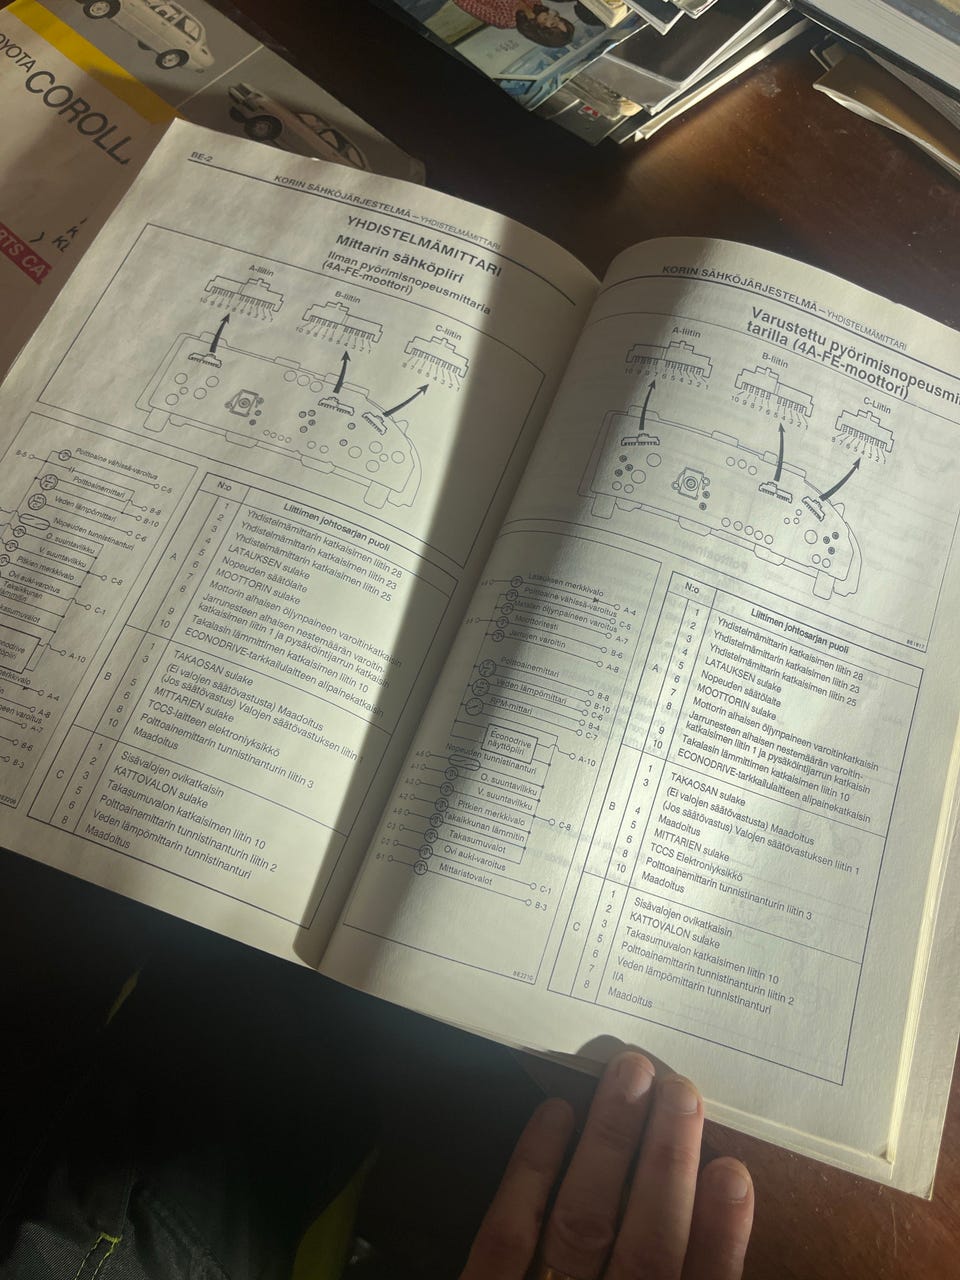 TOYOTA
COROLL
RTS CA
BE-2
KORIN SÄHKÖJÄRJESTELMÄ – YHDISTELMÄMITTARI
YHDISTELMÄMITTARI
Mittarin sähköpiiri
Ilman pyörimisnopeusmittaria
(4A-FE-moottori)
A-liitin
B-liitin
C-liitin
B-5
Polttoaine vähissä-varoitus
C-5
Polttoainemittari
B-8
B-10
Veden lämpömittari
C-6
Nopeuden tunnistinanturi
O. suuntavilkku
V. suuntavilkku
C-8
Pitkien merkkivalo
Ovi auki-varoitus
Takaikkunan
lämmitin
C-1
Takasumuvalot
A-10
A-4
A-8
A-7
B-6
B-3
N:o
Liittimen johtosarjan puoli
A
1 Yhdistelmämittarin katkaisimen liitin 28
2 Yhdistelmämittarin katkaisimen liitin 23
3 Yhdistelmämittarin katkaisimen liitin 25
4 LATAUKSEN sulake
5 Nopeuden säätölaite
6 MOOTTORIN sulake
7 Mottorin alhaisen öljynpaineen varoitinkatkaisin
8 Jarrunesteen alhaisen nestemäärän varoitin-
katkaisimen liitin 1 ja pysäköintijarrun katkaisin
9 Takalasin lämmittimen katkaisimen liitin 10
10 ECONODRIVE-tarkkailulaitteen alipainekatkaisin
B
1 TAKAOSAN sulake
3 (Ei valojen säätövastusta) Maadoitus
(Jos säätövastus) Valojen säätövastuksen liitin 1
5 MITTARIEN sulake
6 TCCS-laitteen elektroniyksikkö
8 Polttoainemittarin tunnistinanturin liitin 3
10 Maadoitus
C
1 Sisävalojen ovikatkaisin
2 KATTOVALON sulake
3 Takasumuvalon katkaisimen liitin 10
5 Polttoainemittarin tunnistinanturin liitin 2
6 Veden lämpömittarin tunnistinanturi
8 Maadoitus
KORIN SÄHKÖJÄRJESTELMÄ – YHDISTELMÄMITTARI
Varustettu pyörimisnopeusmit
tarilla (4A-FE-moottori)
A-liitin
B-liitin
C-Liitin
Latauksen merkkivalo
A-4
Polttoaine vähissä-varoitus
C-5
Matalan öljynpaineen varoitus
A-7
Moottoritesti
B-6
Jarrujen varoitin
A-8
Polttoainemittari
B-8
B-10
Veden lämpömittari
C-6
B-4
RPM-mittari
C-7
Econodrive
näyttöpiiri
A-10
Nopeuden tunnistinanturi
O. suuntavilkku
V. suuntavilkku
Pitkien merkkivalo
C-8
Takaikkunan lämmitin
Takasumuvalot
Ovi auki-varoitus
C-1
Mittaristovalot
B-3
BE2210
N:o
Liittimen johtosarjan puoli
A
1 Yhdistelmämittarin katkaisimen liitin 28
2 Yhdistelmämittarin katkaisimen liitin 23
3 Yhdistelmämittarin katkaisimen liitin 25
4 LATAUKSEN sulake
5 Nopeuden säätölaite
6 MOOTORIN sulake
7 Mottorin alhaisen öljynpaineen varoitinkatkaisin
8 Jarrunesteen alhaisen nestemäärän varoitin-
katkaisimen liitin 1 ja pysäköintijarrun katkaisin
9 Takalasin lämmittimen katkaisimen liitin 10
10 ECONODRIVE-tarkkailulaitteen alipainekatkaisin
B
1 TAKAOSAN sulake
3 (Ei valojen säätövastusta) Maadoitus
(Jos säätövastus) Valojen säätövastuksen liitin 1
4 Maadoitus
5 MITTARIEN sulake
6 TCCS Elektroniyksikkö
8 Polttoainemittarin tunnistinanturin liitin 3
10 Maadoitus
C
1 Sisävalojen ovikatkaisin
2 KATTOVALON sulake
3 Takasumuvalon katkaisimen liitin 10
5 Polttoainemittarin tunnistinanturin liitin 2
6 Veden lämpömittarin tunnistinanturi
7 IIA
8 Maadoitus